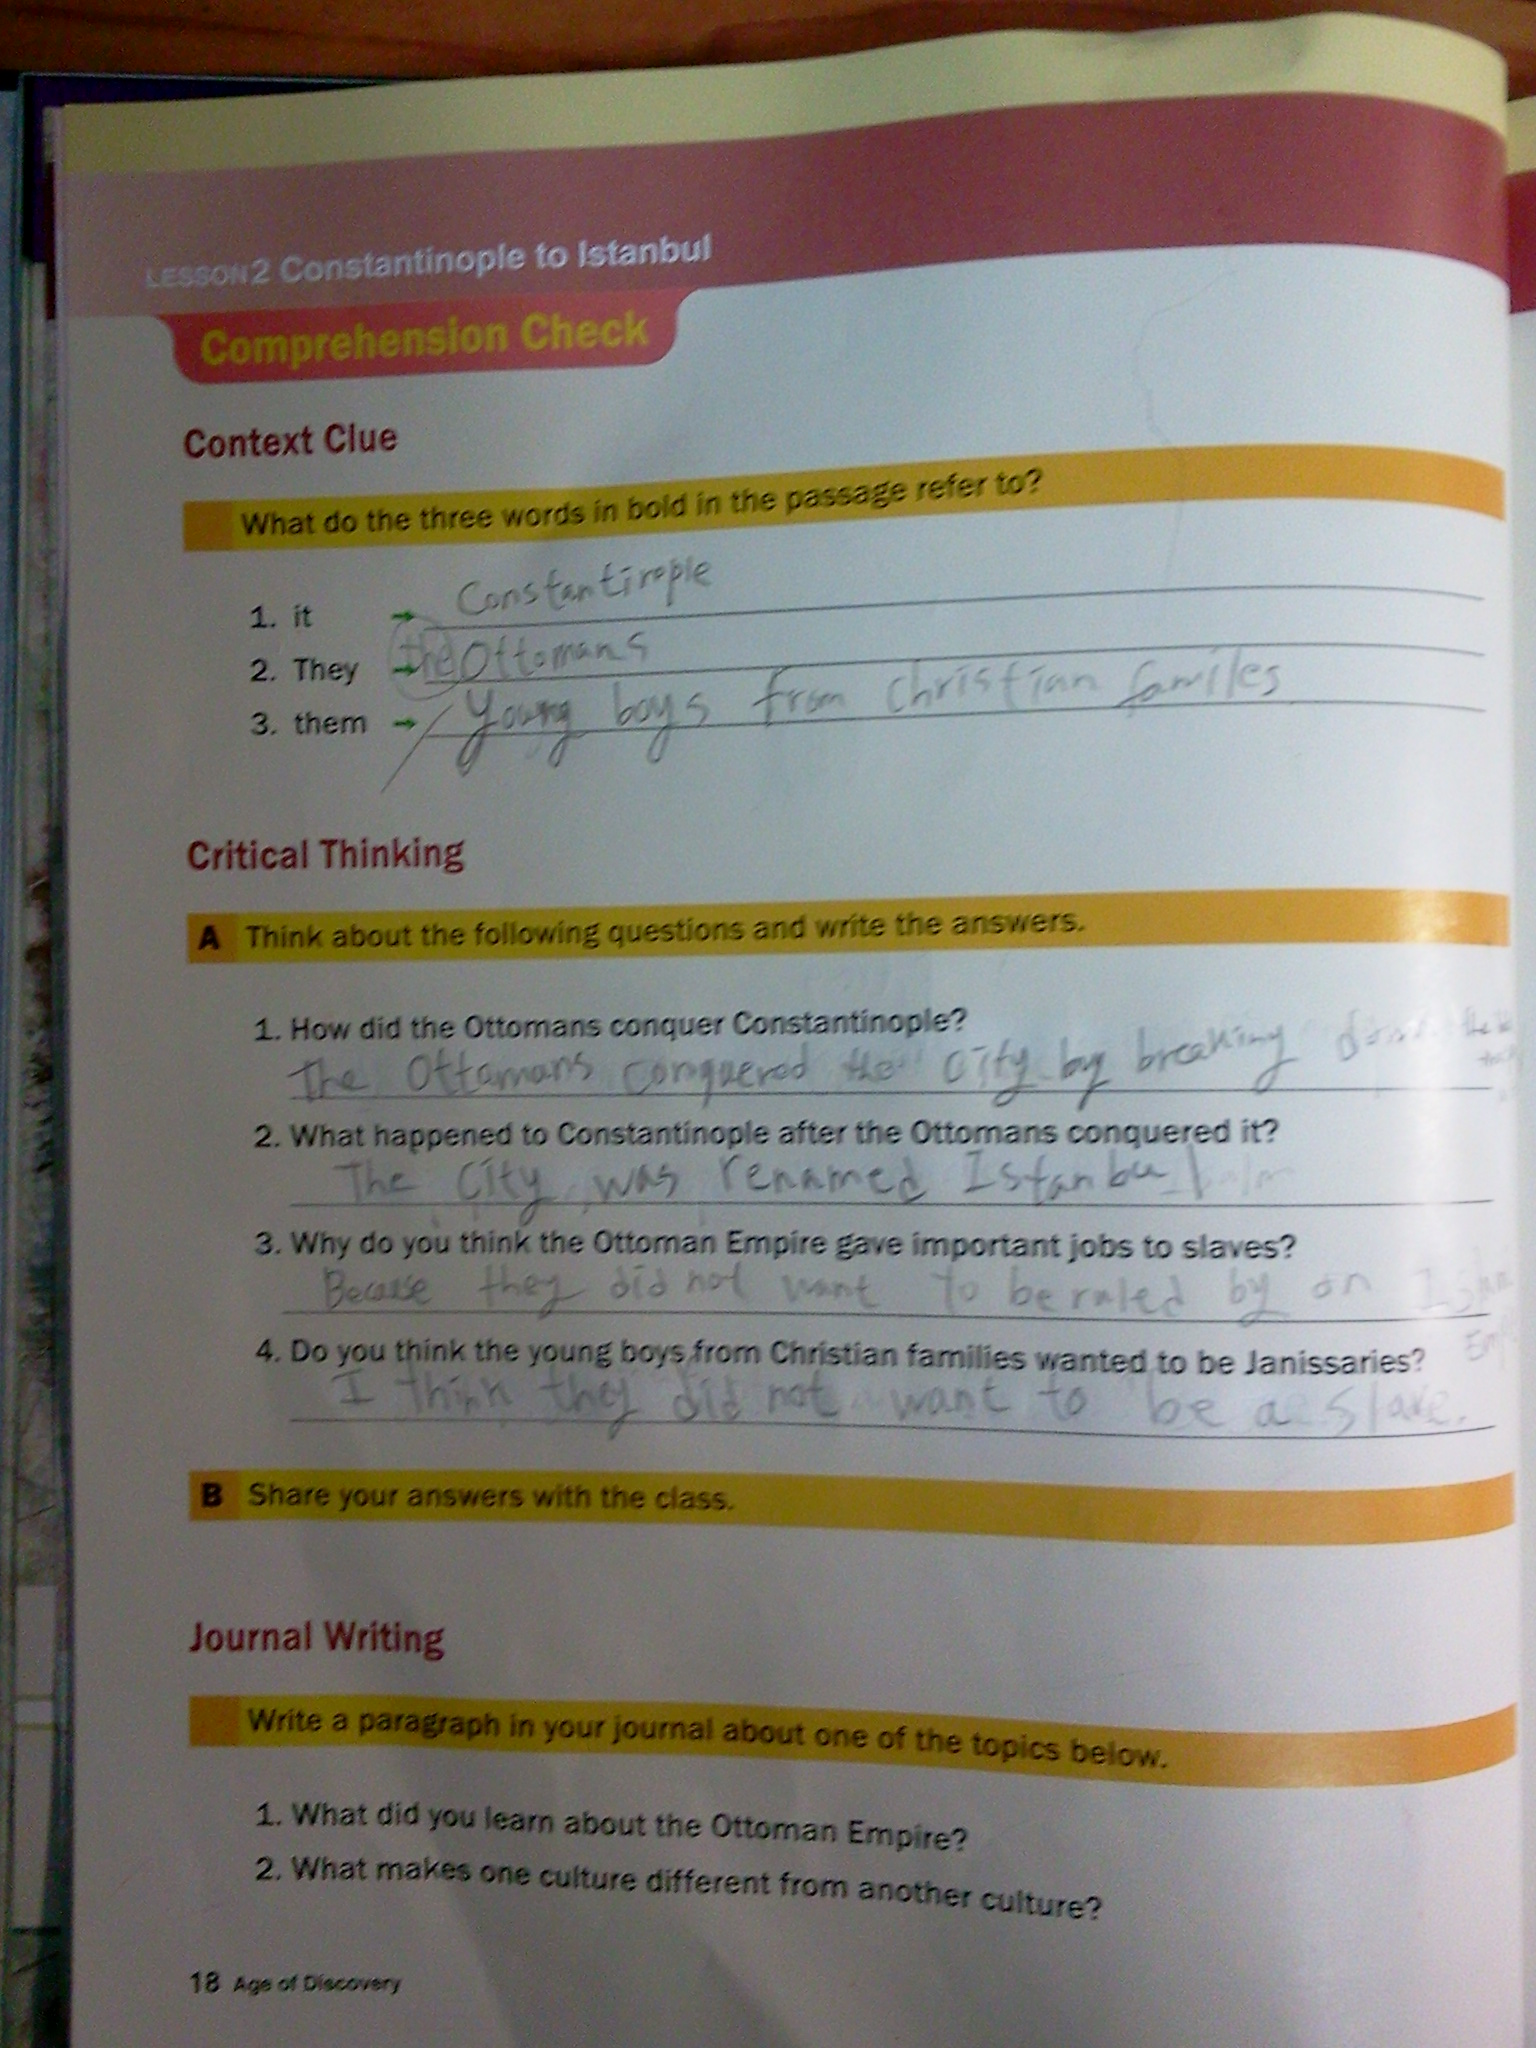 LESSON 2 Constantinople to Istanbul
Comprehension Check
Context Clue
What do the three words in bold in the passage refer to?
1. it → Constantirople
2. They → the Ottomans
3. them → Young boys from Christian familes
Critical Thinking
A Think about the following questions and write the answers.
1. How did the Ottomans conquer Constantinople?
The Ottomans conquered the City by breaking down the
2. What happened to Constantinople after the Ottomans conquered it?
The City was renamed Istanbul
3. Why do you think the Ottoman Empire gave important jobs to slaves?
Because they did not want to be ruled by an
4. Do you think the young boys from Christian families wanted to be Janissaries?
I think they did not want to be a slave.
B Share your answers with the class.
Journal Writing
Write a paragraph in your journal about one of the topics below.
1. What did you learn about the Ottoman Empire?
2. What makes one culture different from another culture?
18 Age of Discovery